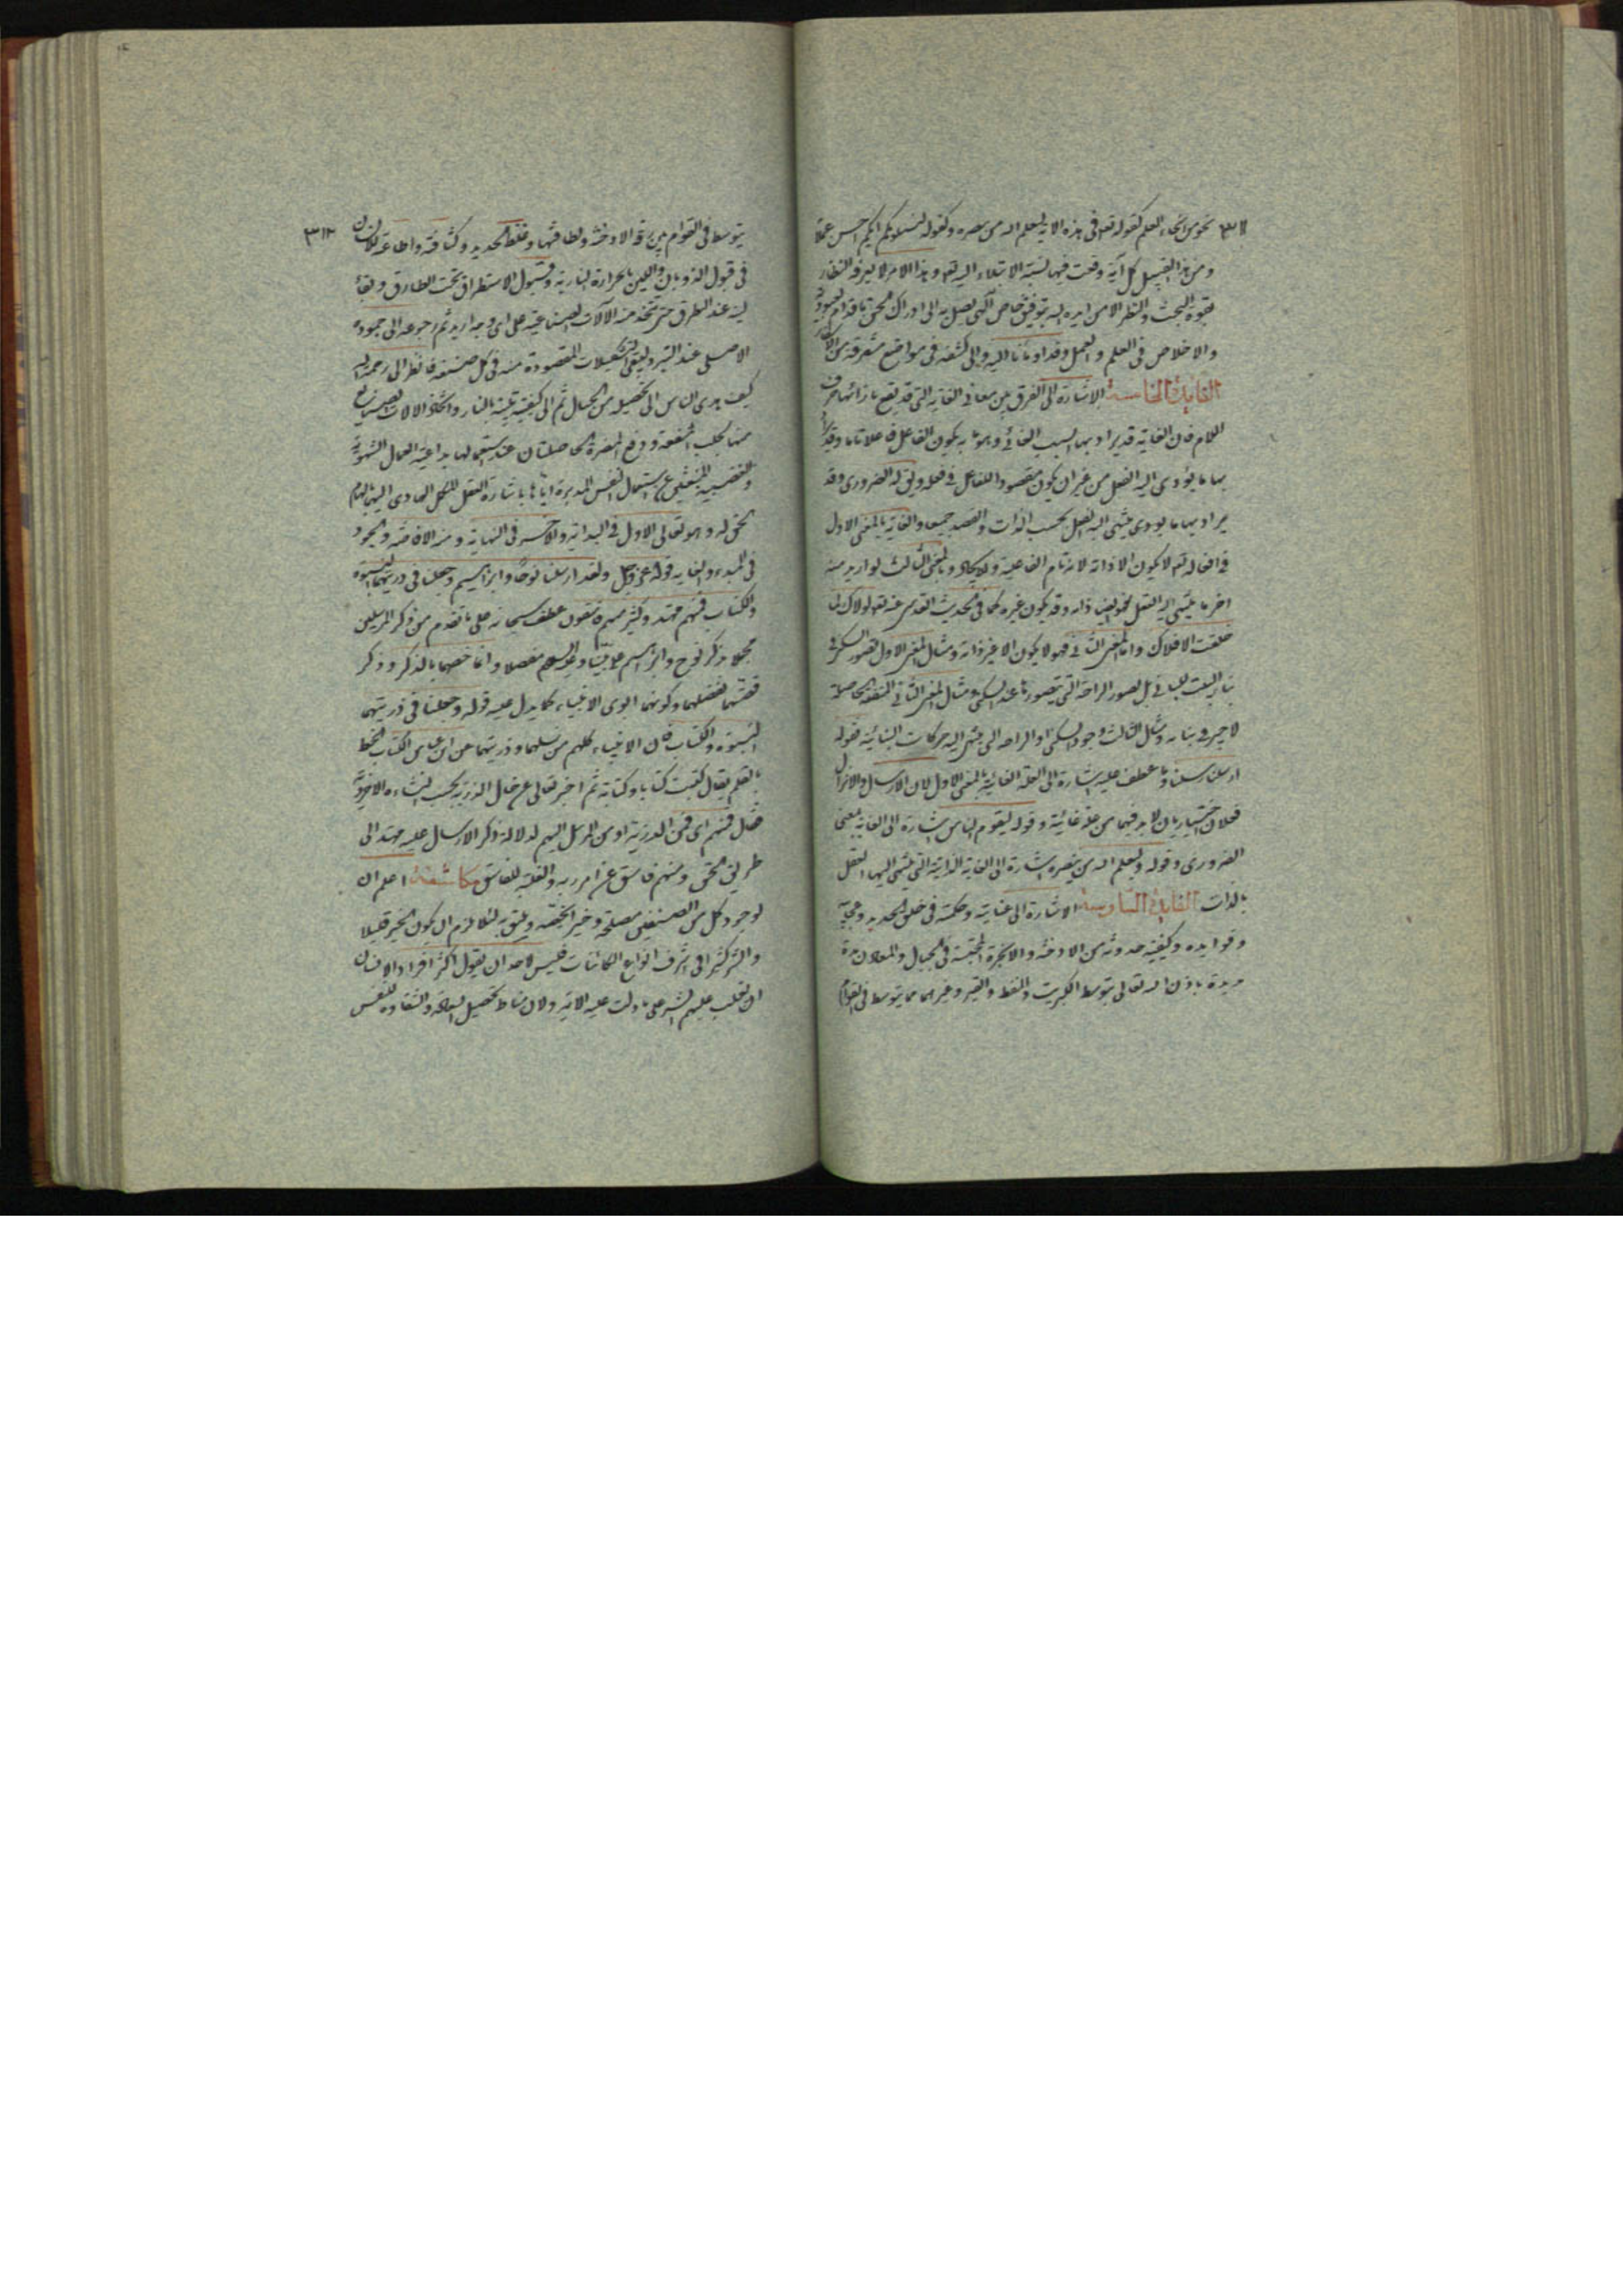 ٣١١
نحو من انحاء العلم كقوله تعه فى هذه الاية ليعلم الله من ينصره وكقوله لنبلونكم ايكم احسن عملا
ومن هذا القبيل كل آية وقعت فيها نسبة الابتلاء اليه تعه وهذا الامر لا يعرفه النظار
بقوة البحث والنظر الا من ايده الله بتوفيق خاص الهى يصل به الى ادراك الحق باقدام العبودية
والاخلاص فى العلم والعمل وقد اومأنا اليه والى كشفه فى مواضع متفرقة من الاسفار
الفايدة الخامسة الاشارة الى الفرق بين معانى الغاية التى قد يقع بازائها حرف
اللام فان الغاية قد يراد بها السبب الغائى وهو ما به يكون الفاعل فاعلا تاما وقد يراد
بها ما يؤدى اليه الفعل من غير ان يكون مقصودا للفاعل فى فعله ويق له الضرورى وقد
يراد بها ما يودى ينتهى اليه الفعل بحسب الذات والقصد جميعا والغاية بالمعنى الاول
فى افعاله تعه لا يكون الا ذاته لانه تام الفاعلية والايجاد وبالمعنى الثالث لو اريد منه
اخر ما ينتهى اليه الفعل فهو ايضا ذاته وقد يكون غيره كما فى الحديث القدسى عنه تعه لولاك لما
خلقت الافلاك واما المعنى الثانى فهو لا يكون الا غير ذاته ومثال المعنى الاول تصور السكنى فى
بناء البيت للبانى بل تصور الراحة التى يتصورها عند السكنى ومثال المعنى الثانى المنفعة الحاصلة
لاجير فى بنائه ومثال الثالث وجود السكنى او الراحة التى ينتهى اليه حركات البنائية فقوله
ارسلنا رسلنا وما عطف عليه اشارة الى العلة الغائية بالمعنى الاول لان الارسال والانزال
فعلان اختياريان لا بد فيهما من علة غائية وقوله ليقوم الناس اشارة الى الغاية بمعنى
الضرورى وقوله وليعلم الله من ينصره اشارة الى الغاية الذاتية التى ينتهى اليها الفعل
بالذات الفايدة السادسة الاشارة الى عنايته وحكمته فى خلق الحديد وعجايبه
وفوايده وكيفية حدوثه من الادخنة والابخرة المحتبسة فى الجبال والمعادن مدة
مديدة باذن الله تعالى بتوسط الكبريت والنفط والقير وغيرهما مما يتوسط فى القوام
٣١٢
يتوسط فى القوام بين رقة الادخنة ولطافتها وغلظ الحديد وكثافته واطاعته للانسان
فى قبول الذوبان واللين بالحرارة النارية وقبول الاستطراق تحت الطارق وبقاء
لينه عند الطرق حتى يتخذ منه الآلات الصناعية على اى وجه اريد ثم رجوعه الى جموده
الاصلى عند التبرد ليبقى التشكيلات المقصودة منه فى كل صنعة فانظر الى رحمة الله
كيف هدى الناس الى تحصيله من الجبال ثم الى كيفية تليينه بالنار واتخاذ الالات الصناعية
منها لجلب المنفعة ودفع المضرة الحاصلتان عند استعمالها بداعية العمال الشهوية
والغضبية المنبعثين عن استعمال النفس المدبرة اياها باشارة العقل للكل الهادى اليها بالهام
الحق له وهو تعالى الاول فى البداية والاخر فى النهاية ومنه الافاضة والجود
فى المبدء والغاية قوله عز وجل ولقد ارسلنا نوحا وابراهيم وجعلنا فى ذريتهما النبوة
والكتاب فمنهم مهتد وكثير منهم فاسقون عطف سبحانه على ما تقدم من ذكر المرسلين
مجملا ذكر نوح وابراهيم على نبينا وعليه السلم مفصلا وانما خصهما بالذكر وذكر
قصتهما لفضلهما وكونهما ابوى الانبياء كما يدل عليه قوله وجعلنا فى ذريتهما
النبوة والكتاب فان الانبياء كلهم من نسلهما وذريتهما عن ابن عباس الكتاب الخط
بالقلم يقال كتبت كتابا وكتابة ثم اخبر تعالى عن حال الذرية بحسب النشاءة الاخروية
فقال فمنهم اى فمن الذرية او من المرسل اليهم لدلالة ذكر الارسال عليه مهتد الى
طريق الحق ومنهم فاسق عن امر ربه والغلبة للفاسق مكاشفة اعلم ان
لوجود كل من الصنفين مصلحة وخير الحقته ويليق به لئلا يلزم ان يكون الخير قليلا
والشر كثيرا فى اشرف انواع الكائنات فليس لاحد ان يقول اكثر افراد الانسان
ان تغلب عليهم الشر على ما دلت عليه الاية ولان مناط تحصيل السعادة والشقاوة للنفس